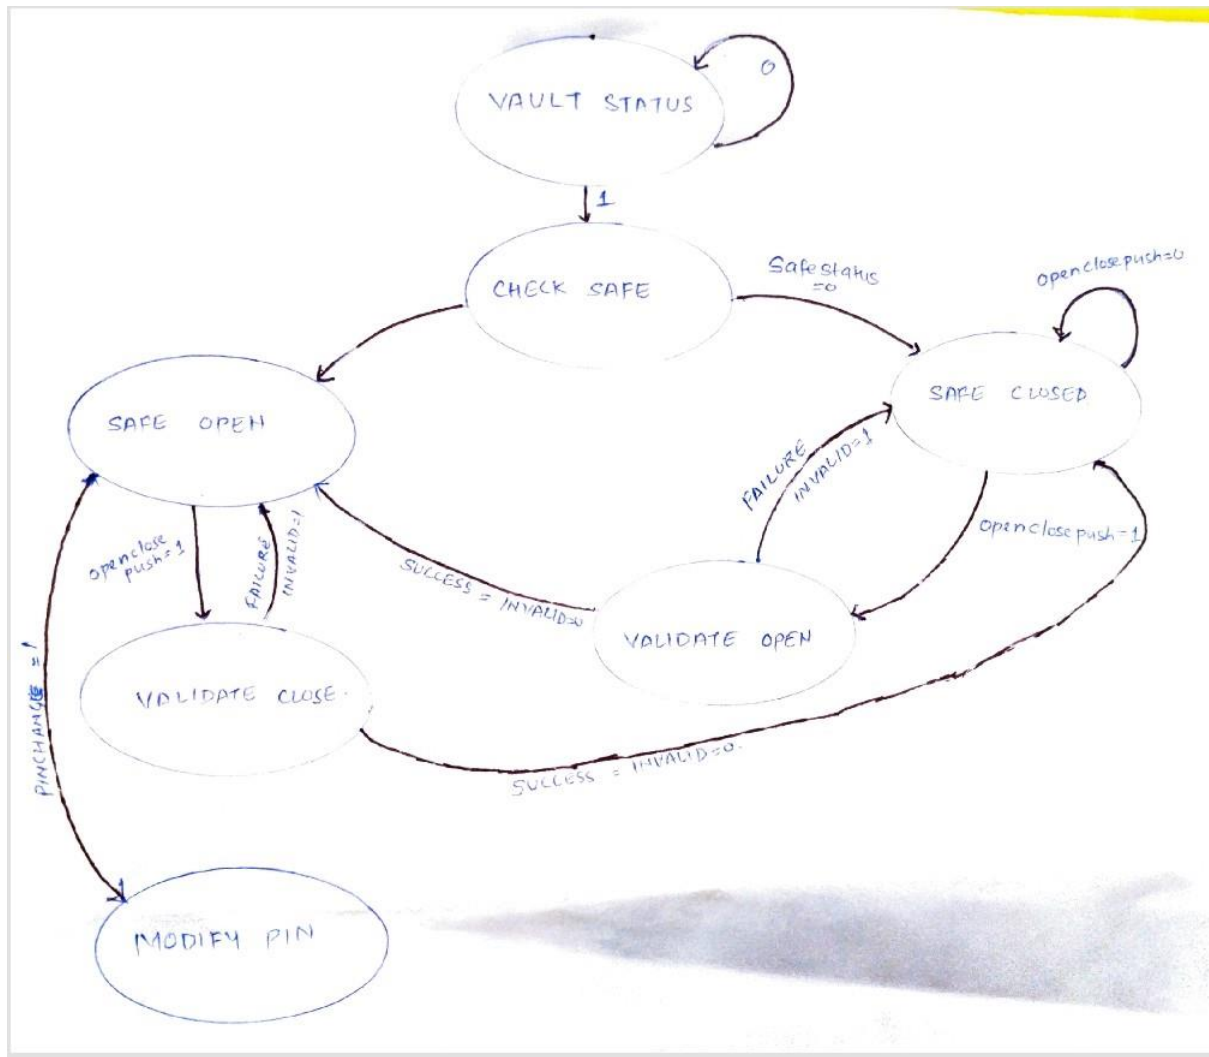 0
VAULT STATUS
1
CHECK SAFE
Safe status
=0
openclosepush=0
SAFE OPEN
SAFE CLOSED
FAILURE
INVALID=1
openclose
push=1
FAILURE
INVALID=1
SUCCESS = INVALID=0
openclosepush=1
VALIDATE OPEN
VALIDATE CLOSE.
PINCHANGE=1
SUCCESS = INVALID=0.
MODIFY PIN